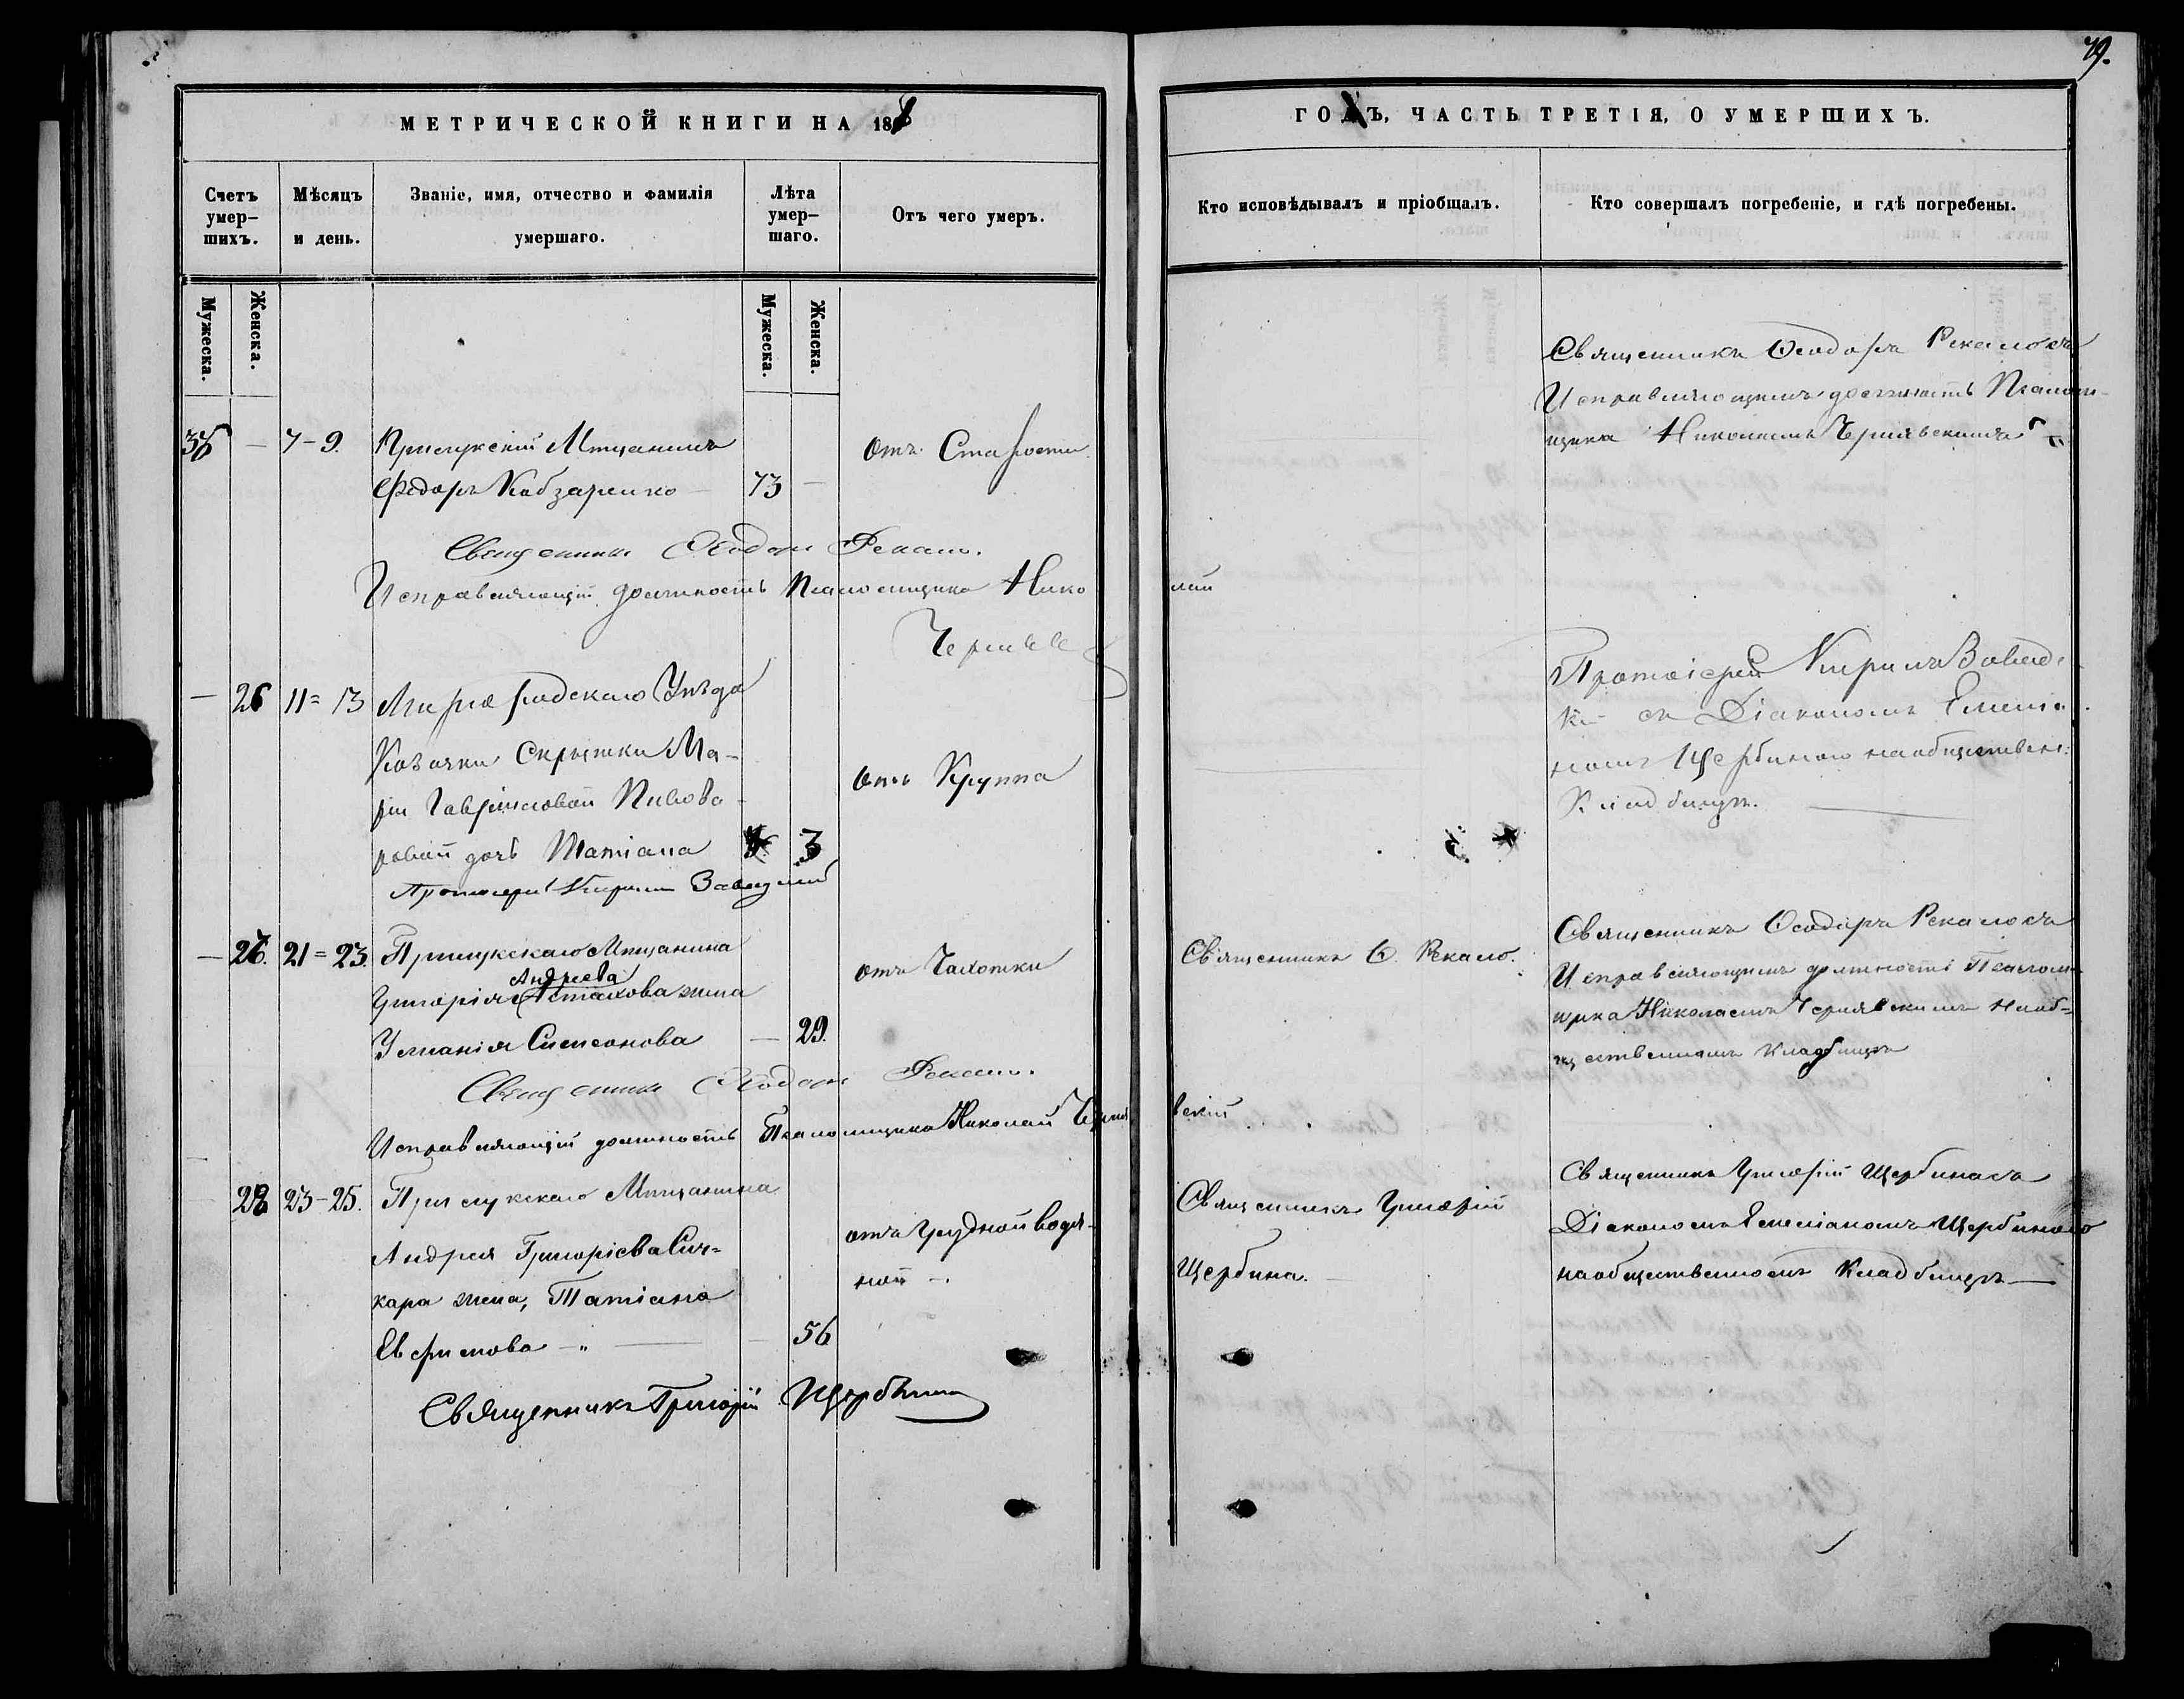 79.
МЕТРИЧЕСКОЙ КНИГИ НА 18
ГОДЪ, ЧАСТЬ ТРЕТІЯ, О УМЕРШИХЪ.
Счетъ умер-
шихъ.
Мѣсяцъ
и день.
Званіе, имя, отчество и фамилія
умершаго.
Лѣта
умер-
шаго.
Отъ чего умеръ.
Кто исповѣдывалъ и пріобщалъ.
Кто совершалъ погребеніе, и гдѣ погребены.
Мужеска.
Женска.
Мужеска.
Женска.
35 — 7-9. Прилукскій Мѣщанинъ
Ѳедоръ Кобзаренко — 73 —
отъ Старости
Священникъ Ѳеодоръ Рекалосъ
Исправляющимъ должность Псаломщ-
щика Николаемъ Чернявскимъ
Священникъ Ѳеодоръ Рекало.
Исправляющій должность Псаломщика Нико лай
— 26 11=13 Миргородскаго Уѣзда
Козачки Скрыпки Ма-
ріи Гавріиловой Пивова-
ровой дочь Татіана 3
отъ Круппа
Протоіерей Кирилъ Завад
съ Діакономъ Емелія
номъ Щербиною наобществен:
Кладбищѣ.
Протоіерей Кирилъ Завадскій
— 27. 21=23. Прилукскаго Мѣщанина
Андреева
Григорія Астахова жена
Уліанія Симеонова — 29.
отъ Чахотки
Священникъ Ѳ. Рекало.
Священникъ Ѳеодоръ Рекалосъ
Исправляющимъ должность Псалом-
щика Николаемъ Чернявскимъ наоб=
щественномъ кладбищѣ
Священникъ Ѳеодоръ Рекало.
Исправляющій должность Псаломщика Николай Черня вскій
28 23-25. Прилукскаго Мѣщанина
Андрея Григоріева Сич=
кара жена, Татіана
Евфимова — 56
отъ Грудной водя-
ной —.
Священникъ Григорій
Щербина.
Священникъ Григорій Щербинасъ
Діакономъ Емеліаномъ Щербиною
наобщественномъ Кладбищѣ —
Священникъ Григорій Щербина